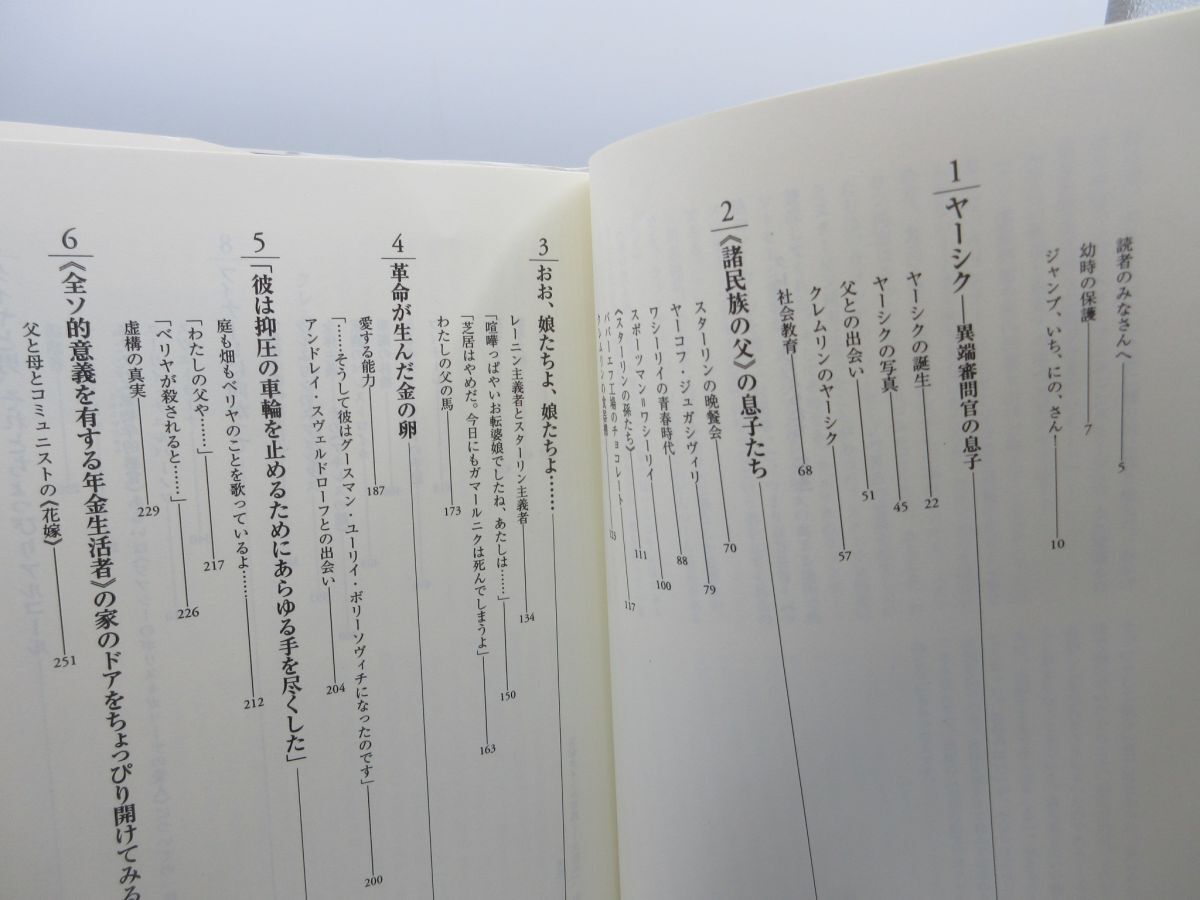 読者のみなさんへ 5
幼時の保護 7
ジャンプ、いち、にの、さん… 10
1 ヤーシク―異端審問官の息子
ヤーシクの誕生 22
ヤーシクの写真 45
父との出会い 51
クレムリンのヤーシク 57
社会教育 68
2 《諸民族の父》の息子たち
スターリンの晩餐会 70
ヤーコフ・ジュガシヴィリ 79
ワシーリイの青春時代 88
スポーツマン=ワシーリイ 100
《スターリンの孫たち》 111
ババーエフ工場のチョコレート 117
3 おお、娘たちよ、娘たちよ……
レーニン主義者とスターリン主義者 134
「喧嘩っぱやいお転婆娘でしたね、あたしは……」 150
「芝居はやめだ。今日にもガマールニクは死んでしまうよ」 163
わたしの父の馬 173
4 革命が生んだ金の卵
愛する能力 187
「……そうして彼はグースマン・ユーリイ・ボリーソヴィチになったのです」 200
アンドレイ・スヴェルドローフとの出会い 204
5 「彼は抑圧の車輪を止めるためにあらゆる手を尽くした」
庭も畑もベリヤのことを歌っているよ…… 212
「わたしの父や……」 217
「ベリヤが殺されると……」 226
虚構の真実 229
6 《全ソ的意義を有する年金生活者》の家のドアをちょっぴり開けてみる
父と母とコミュニストの《花嫁》 251